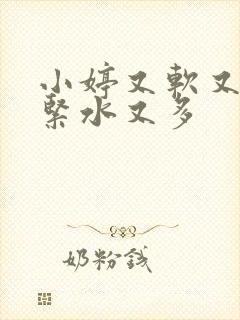 小婷又軟又
緊水又多
奶粉錢